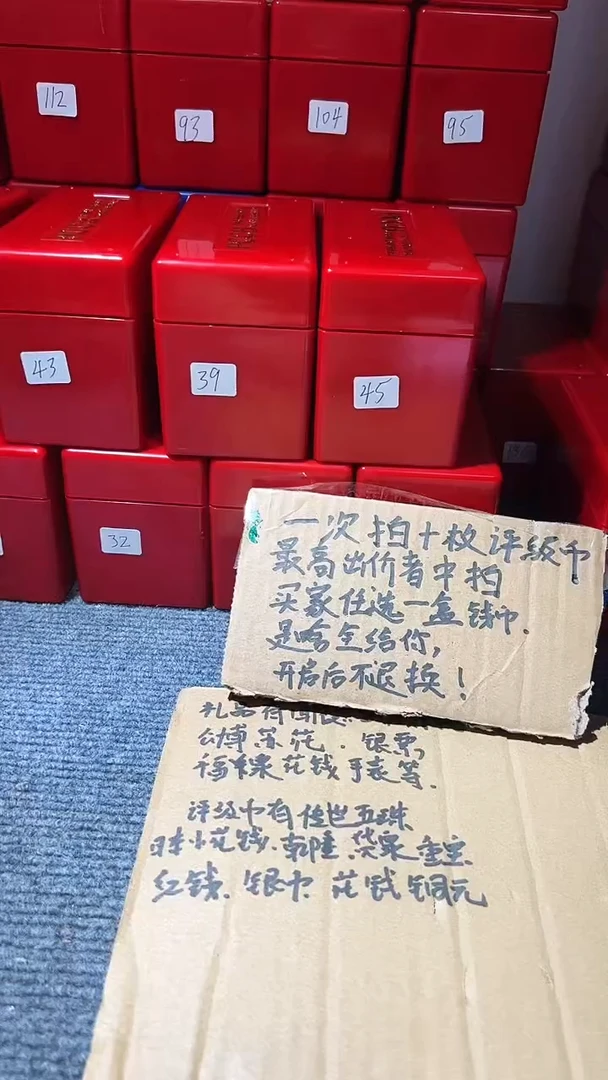 112
93
104
95
43
39
45
32
一次拍十枚评级币
最高出价者中拍
买家任选一盒钱币.
是啥全给你,
开启后不退换!
礼品有
公博 花.银票,
花钱手表等.
评级币有传世五珠
日本小花钱.乾隆.货泉重宝
红钱.银币 花钱铜元